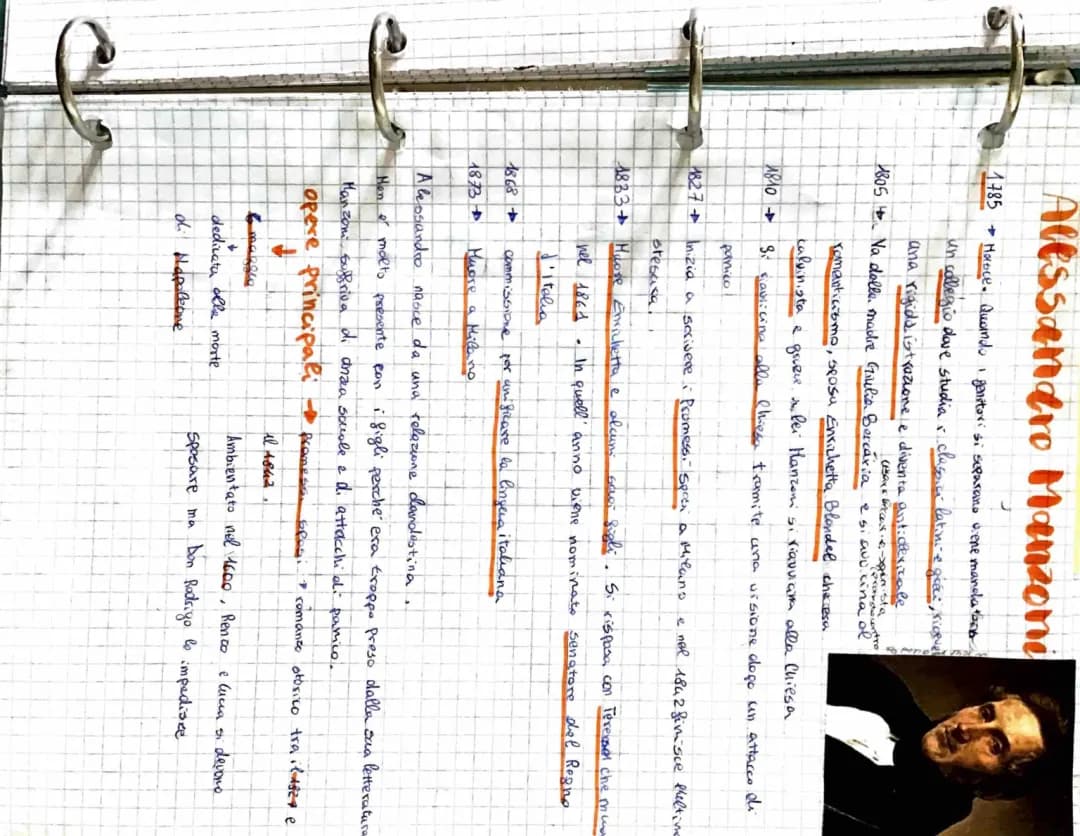 Alessandro Manzoni
1785 → Nasce. Quando i genitori si separano viene mandato in
un collegio dove studia i classici latini e greci, riceve
una rigida istrazione e diventa anticlericale
1805 → Va dalla madre Giulia Beccaria e si avvicina al
Cesare Beccaria →
romanticismo, sposa Enrichetta Blondel che era
calvinista e grazie a lei Manzoni si riavvicina alla Chiesa
1810 → Si riavvicina alla Chiesa tramite una visione dopo un attacco di
panico
1827 → Inizia a scrivere i Promessi sposi a Milano e nel 1842 finisce
stesura.
1833 → Muore Enrichetta e alcuni suoi figli. Si risposa con Teresa che
nel 1861. In quell'anno viene nominato senatore del Regno
d'Italia
1868 → commissione per unificare la lingua italiana
1873 → Muore a Milano
Alessandro nasce da una relazione clandestina.
Non è molto presente con i figli perché era troppo preso dalla sua letteratura
Manzoni soffriva di ansia sociale e di attacchi di panico.
opere principali → promessi sposi → romanzo storico tra il 1827 e
il 1842.
5 maggio
Ambientato nel 1600, Renzo e Lucia si devono
dedicata alla morte
sposare ma Don Rodrigo lo impedisce
di Napoleone